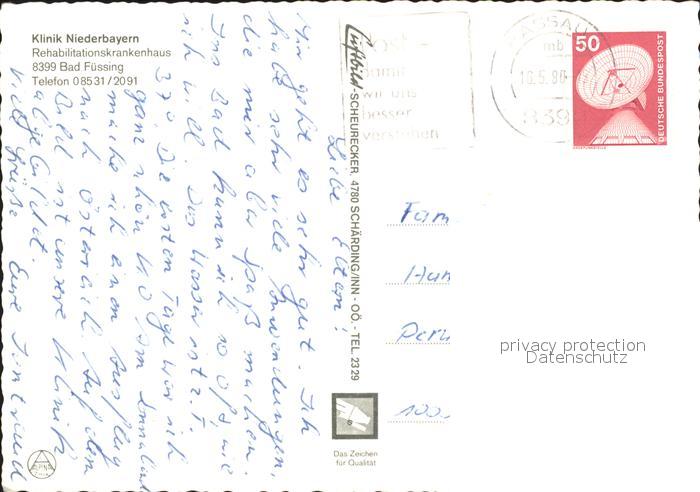 Klinik Niederbayern
Rehabilitationskrankenhaus
8399 Bad Füssing
Telefon 08531/2091
Luftbild-SCHEURECKER, 4780 SCHÄRDING/INN - OÖ. - TEL. 2329
PASSAU
mb
16.5.80
839
wir uns
besser
verstehen
50
DEUTSCHE BUNDESPOST
Liebe Eltern!
Mir geht es sehr gut. Ich
habe sehr viele Anwendungen,
die mir aber Spaß machen.
Ins Bad kann ich so oft wie
ich will. Das Wasser ist z.T.
37° Die ersten Tage war ich
ganz schön k.o. Am
mache ich einen Ausflug
nach Österreich. Auf dem
Bild ist unsere Klinik
abgebildet.
Viele Grüße Eure
Fam
Han
100
privacy protection
Datenschutz
Das Zeichen
für Qualität
ALPINA